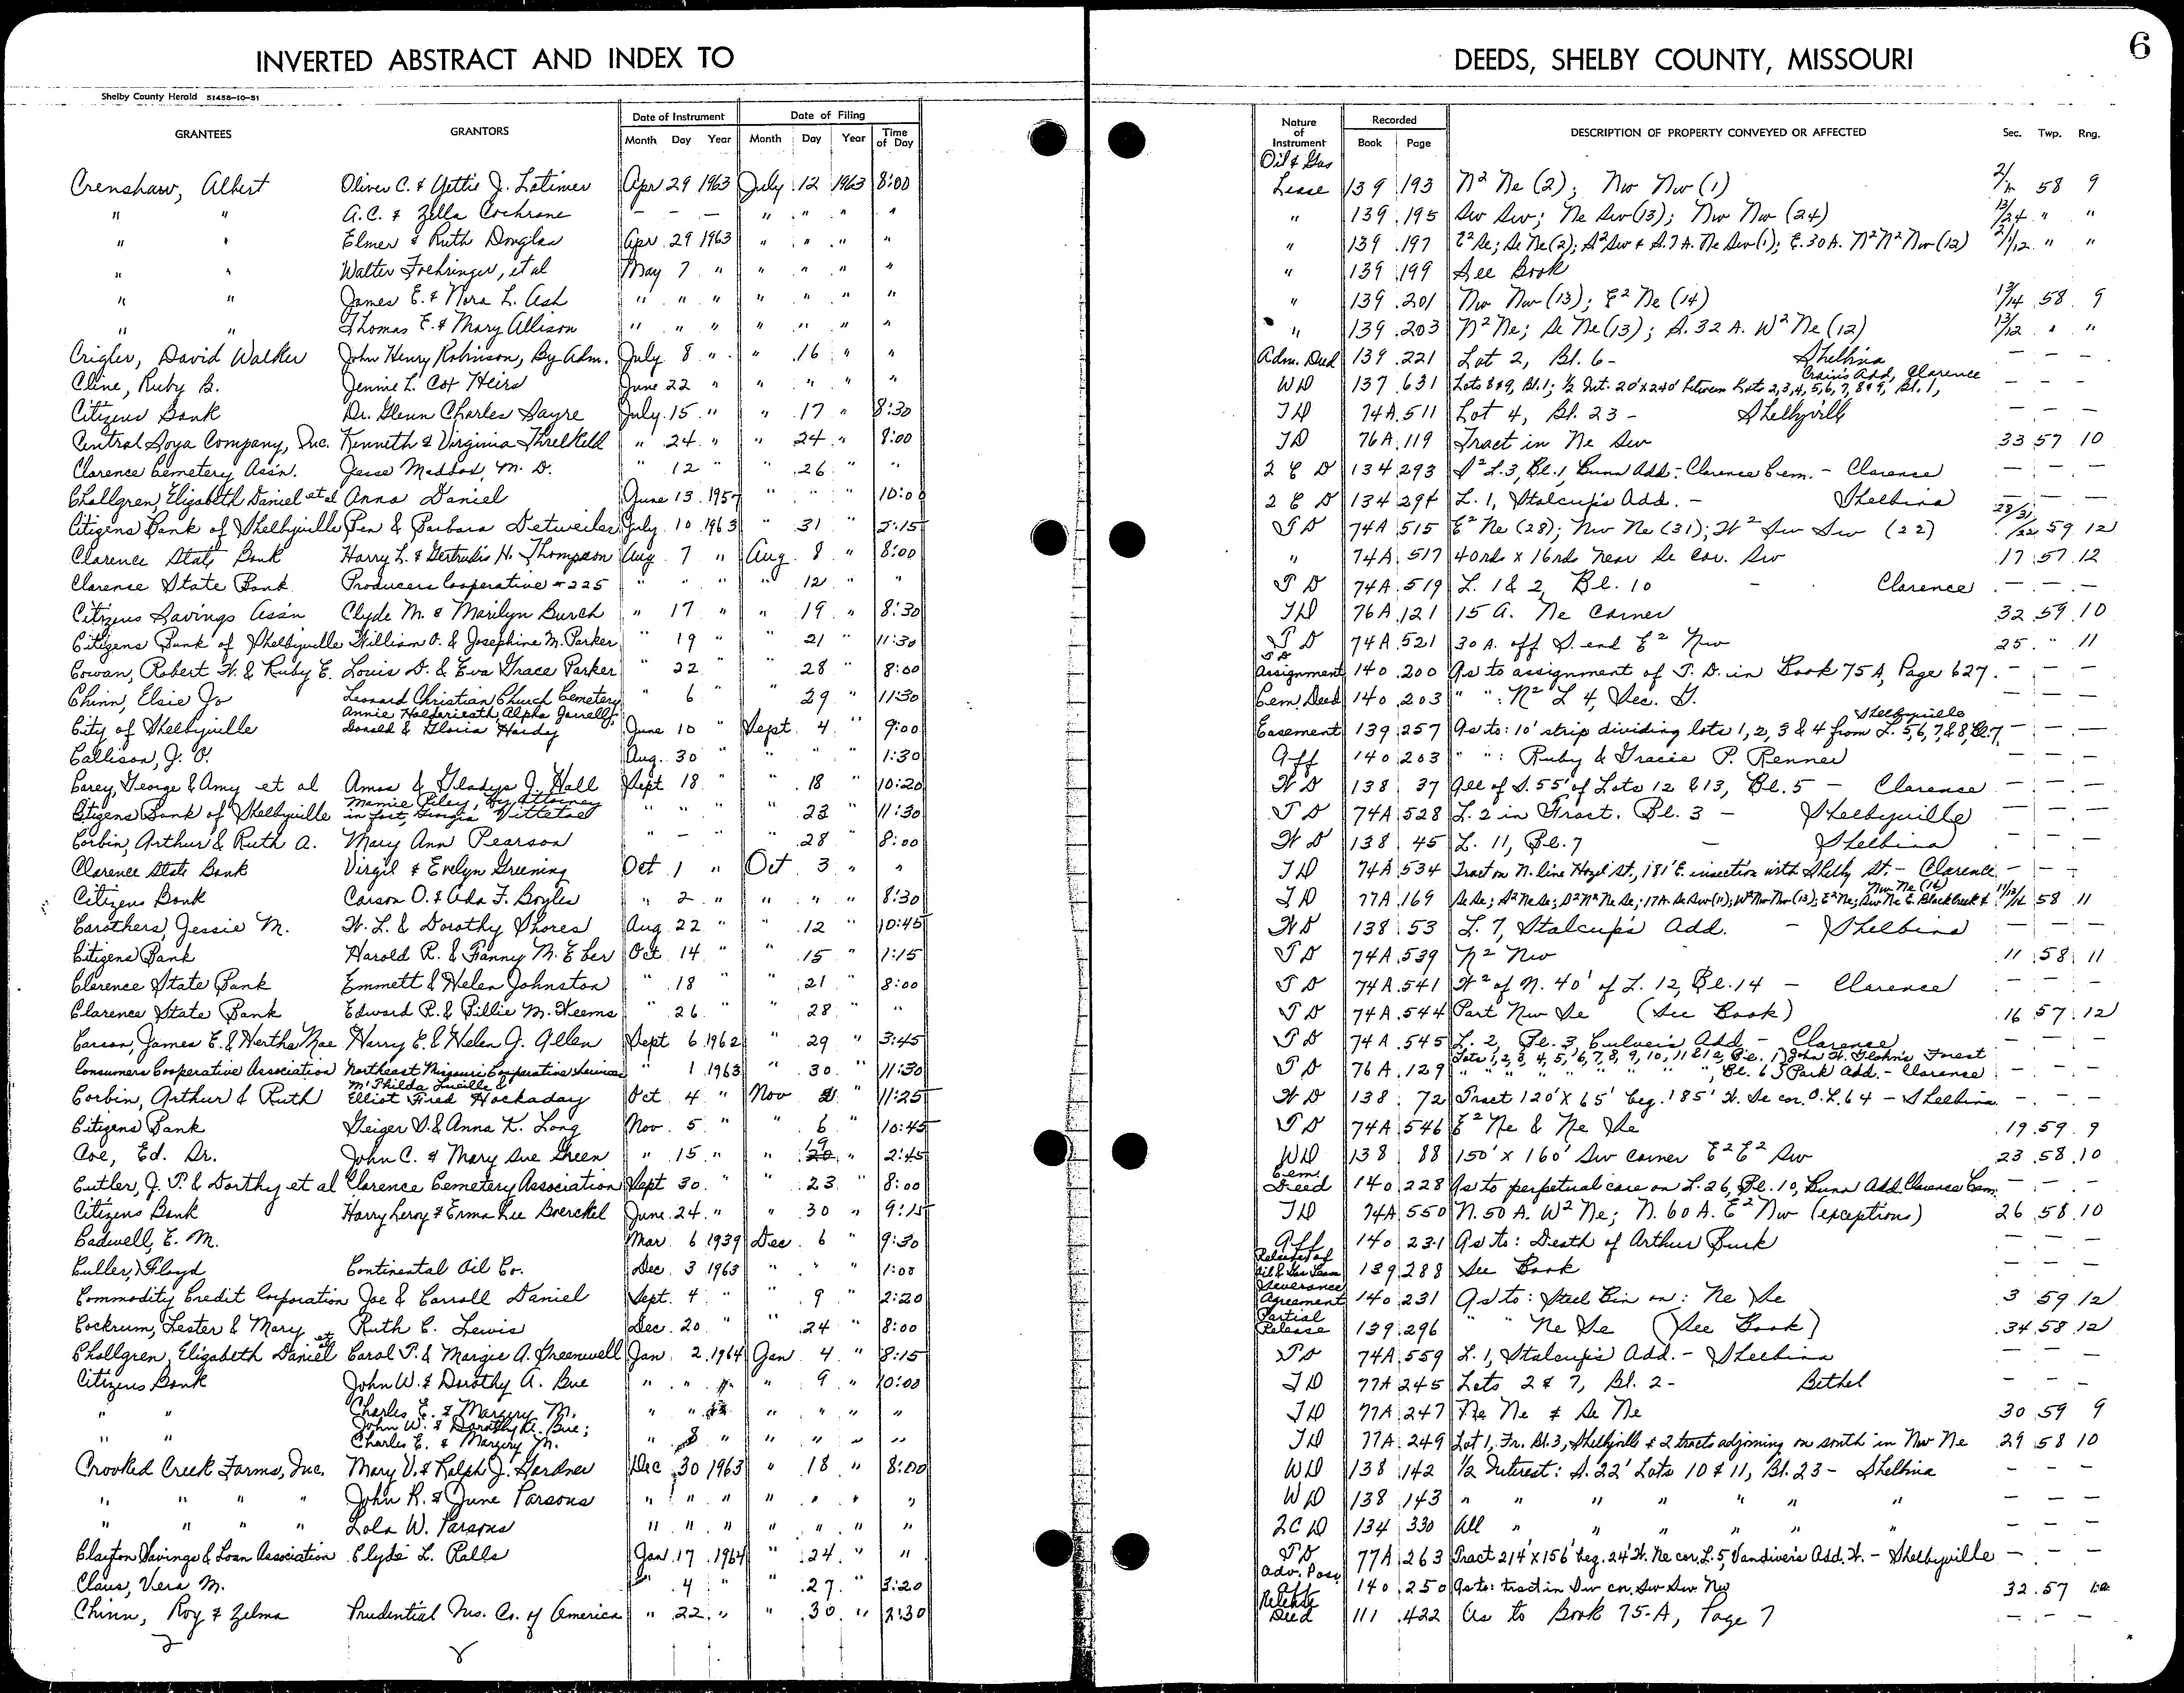 INVERTED ABSTRACT AND INDEX TO DEEDS, SHELBY COUNTY, MISSOURI 6
Shelby County Herald 51458-10-51
GRANTEES GRANTORS Date of Instrument Month Day Year Date of Filing Month Day Year Time of Day Nature of Instrument Recorded Book Page DESCRIPTION OF PROPERTY CONVEYED OR AFFECTED Sec. Twp. Rng.
Crenshaw, Albert Oliver C. & Yettie J. Latimer Apr 29 1963 July 12 1963 8:00 Oil & Gas Lease 139 193 N² Ne (2); Nw Nw (1) 58 9
" " A.C. & Zella Cochrane — — — " " " " " 139 195 Sw Sw; Ne Sw (13); Nw Nw (24) 13/24 " "
" " Elmer & Ruth Douglas Apr 29 1963 " " " " " 139 197 E² Se; Se Ne (2); S² Sw & S. 7 A. Ne Sw (1); E. 30 A. N² N² Nw (12) 2/1/12 " "
" " Walter Foehringer, et al May 7 " " " " " " 139 199 See Book
" " James E. & Nora L. Ash " " " " " " " " 139 201 Nw Nw (13); E² Ne (14) 13/14 58 9
" " Thomas E. & Mary Allison " " " " " " " " 139 203 N² Ne; Se Ne (13); S. 32 A. W² Ne (12) 13/12 " "
Crigler, David Walker John Henry Robinson, By Adm. July 8 " " 16 " " Adm. Deed 139 221 Lot 2, Bl. 6 - Shelbina — — —
Cline, Ruby B. Jennie L. Cox Heirs June 22 " " " " " WD 137 631 Lots 8 & 9, Bl. 1; ½ Int. 20' x 240' between Lots 2, 3, 4, 5, 6, 7, 8 & 9, Bl. 1, Crain's Add, Clarence — — —
Citizens Bank Dr. Glenn Charles Sayre July 15 " " 17 " 8:30 TD 74A 511 Lot 4, Bl. 23 - Shelbyville — — —
Central Soya Company, Inc. Kenneth & Virginia Threlkeld " 24 " " 24 " 8:00 TD 76A 119 Tract in Ne Sw 33 57 10
Clarence Cemetery Ass'n. Jesse Maddox, M. D. " 12 " " 26 " " 2 C D 134 293 S² L. 3, Bl. 1, Bunn Add - Clarence Cem. - Clarence — — —
Chollgren, Elizabeth Daniel et al Anna Daniel June 13 1957 " " " 10:00 2 C D 134 294 L. 1, Stalcup's Add. - Shelbina — — —
Citizens Bank of Shelbyville Ben & Barbara Detweiler July 10 1963 " 31 " 2:15 T D 74A 515 E² Ne (28); Nw Ne (31); W² Sw Sw (22) 28/31/22 59 12
Clarence State Bank Harry L. & Gertrudis H. Thompson Aug 7 " Aug 8 " 8:00 " 74A 517 40 rds x 16 rds near Se Cor. Sw 17 57 12
Clarence State Bank Producers Cooperative #225 " " " " 12 " " T D 74A 519 L. 1 & 2, Bl. 10 - Clarence — — —
Citizens Savings Ass'n Clyde M. & Marilyn Burch " 17 " " 19 " 8:30 TD 76A 121 15 A. Ne Corner 32 59 10
Citizens Bank of Shelbyville William O. & Josephine M. Parker " 19 " " 21 " 11:30 T D 74A 521 30 A. off S. end E² Nw 25 " 11
Cowan, Robert H. & Ruby E. Louis D. & Eva Grace Parker " 22 " 28 " 8:00 T D Assignment 140 200 As to assignment of T. D. in Book 75A, Page 627. — — —
Chinn, Elsie Jo Leonard Christian Church Cemetery " 6 " 29 " 11:30 Cem. Deed 140 203 " " : N² L 4, Sec. G. — — —
City of Shelbyville Annie Holderieath, Alpha Jarrell, Donald & Gloria Hardy June 10 " Sept. 4 " 9:00 Easement 139 257 As to: 10' strip dividing lots 1, 2, 3 & 4 from L. 5, 6, 7, & 8, Bl. 7, Shelbyville — — —
Callison, J. O. Aug. 30 " " " " 1:30 Aff 140 203 " " : Ruby & Gracie P. Renner — — —
Carey, George & Amy et al Amos & Gladys J. Hall Sept 18 " " 18 " 10:20 W D 138 37 All of S. 55' of Lots 12 & 13, Bl. 5 - Clarence — — —
Citizens Bank of Shelbyville Mamie Riley, by attorney in fact, Georgia Vittetoe " " " " 23 " 11:30 T D 74A 528 L. 2 in Fract. Bl. 3 - Shelbyville — — —
Corbin, Arthur & Ruth A. Mary Ann Pearson " — " " 28 " 8:00 W D 138 45 L. 11, Bl. 7 - Shelbina — — —
Clarence State Bank Virgil & Evelyn Greening Oct 1 " Oct 3 " " TD 74A 534 Tract on N. line Hazel St., 181' E. insection with Shelby St. - Clarence — — —
Citizens Bank Carson O. & Ada F. Boyles " 2 " " " " 8:30 TD 77A 169 Se Se; S² Ne Se; S² N² Ne Se; 17 A. Se Sw (11); W² Nw Nw (13); E² Ne; Sw Ne E. Black Creek & Nw Ne (14) 11/13/14 58 11
Carothers, Jessie M. W. L. & Dorothy Shores Aug 22 " " 12 " 10:45 W D 138 53 L. 7, Stalcup's Add. - Shelbina — — —
Citizens Bank Harold R. & Fanny M. Eber Oct 14 " " 15 " 1:15 T D 74A 539 N² Nw 11 58 11
Clarence State Bank Emmett & Helen Johnston " 18 " 21 " 8:00 T D 74A 541 W² of N. 40' of L. 12, Bl. 14 - Clarence — — —
Clarence State Bank Edward R. & Billie M. Weems " 26 " 28 " T D 74A 544 Part Nw Se (See Book) 16 57 12
Carson, James E. & Hertha Mae Harry E. & Helen J. Allen Sept 6 1962 " 29 " 3:45 T D 74A 545 L. 2, Bl. 3, Culver's Add - Clarence
Consumers Cooperative Association Northeast Missouri Cooperative Services " 1 1963 " 30 " 11:30 T D 76A 129 Lots 1, 2, 3, 4, 5, 6, 7, 8, 9, 10, 11 & 12, Bl. 1 } John H. Gloshn's Forest " " " " " " " ", Bl. 6 } Park Add. - Clarence — — —
Corbin, Arthur & Ruth M'Philda Lucille & Elliot Fred Hockaday Oct 4 " Nov " 11:25 W D 138 72 Tract 120' x 65' beg. 185' W. Se cor. O.L. 64 - Shelbina — — —
Citizens Bank Geiger V. & Anna K. Long Nov. 5 " " 6 " 10:45 T D 74A 546 E² Ne & Ne Se 19 59 9
Coe, Ed. Dr. John C. & Mary Sue Green " 15 " " 19 20 " 2:45 WD 138 88 150' x 160' Sw corner E² E² Sw 23 58 10
Cutler, J. P. & Dorthy et al Clarence Cemetery Association Sept 30 " " 23 " 8:00 Cem Deed 140 228 As to perpetual care on L. 26, Bl. 10, Bunn Add. Clarence Cem. — — —
Citizens Bank Harry Leroy & Erma Lee Boerckel June 24 " " 30 " 9:15 TD 74A 550 N. 50 A. W² Ne; N. 60 A. E² Nw (exceptions) 26 58 10
Cadwell, E. M. Mar. 6 1939 Dec. 6 " 9:30 Aff 140 231 As to: Death of Arthur Burk — — —
Culler, Floyd Continental Oil Co. Dec. 3 1963 " " " 1:00 Release of Oil & Gas Lease 139 288 See Book — — —
Commodity Credit Corporation Joe & Carroll Daniel Sept. 4 " " 9 " 2:20 Severance Agreement 140 231 As to: Steel Bin on: Ne Se 3 59 12
Cockrum, Lester & Mary Ruth C. Lewis Dec. 20 " " 24 " 8:00 Partial Release 139 296 " " Ne Se (See Book) 34 58 12
Chollgren, Elizabeth Daniel et al Carol P. & Margie A. Greenwell Jan 2 1964 Jan 4 " 8:15 T D 74A 559 L. 1, Stalcup's Add. - Shelbina — — —
Citizens Bank John W. & Dorothy A. Bue " " " " 9 " 10:00 TD 77A 245 Lots 2 & 7, Bl. 2 - Bethel — — —
" " Charles E. & Margery M. " " " " " " TD 77A 247 Ne Ne & Se Ne 30 59 9
" " John W. & Dorothy A. Bue; Charles E. & Margery M. " 8 " " " " " TD 77A 249 Lot 1, Fr. Bl. 3, Shelbyville & 2 tracts adjoining on south in Nw Ne 29 58 10
Crooked Creek Farms, Inc. Mary V. & Ralph J. Gardner Dec 30 1963 " 18 " 8:00 WD 138 142 ½ Interest: S. 22' Lots 10 & 11, Bl. 23 - Shelbina — — —
" " " " John R. & June Parsons " " " " " " " WD 138 143 " " " " " " " — — —
" " " " Lola W. Parsons " " " " " " " 2C D 134 330 All " " " " " " — — —
Clayton Savings & Loan Association Clyde L. Ralls Jan 17 1964 " 24 " " T D 77A 263 Tract 214' x 156' beg. 24' W. Ne cor. L. 5, Vandiver's Add. W. - Shelbyville — — —
Claus, Vera M. " 4 " " 27 " 3:20 Adv. Poss. Aff 140 250 As to: tract in Sw cor. Sw Sw Nw 32 57
Chinn, Roy & Zelma Prudential Ins. Co. of America " 22 " " 30 " 2:30 Release Deed 111 422 As to Book 75-A, Page 7 — — —